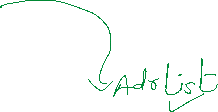 Adr List